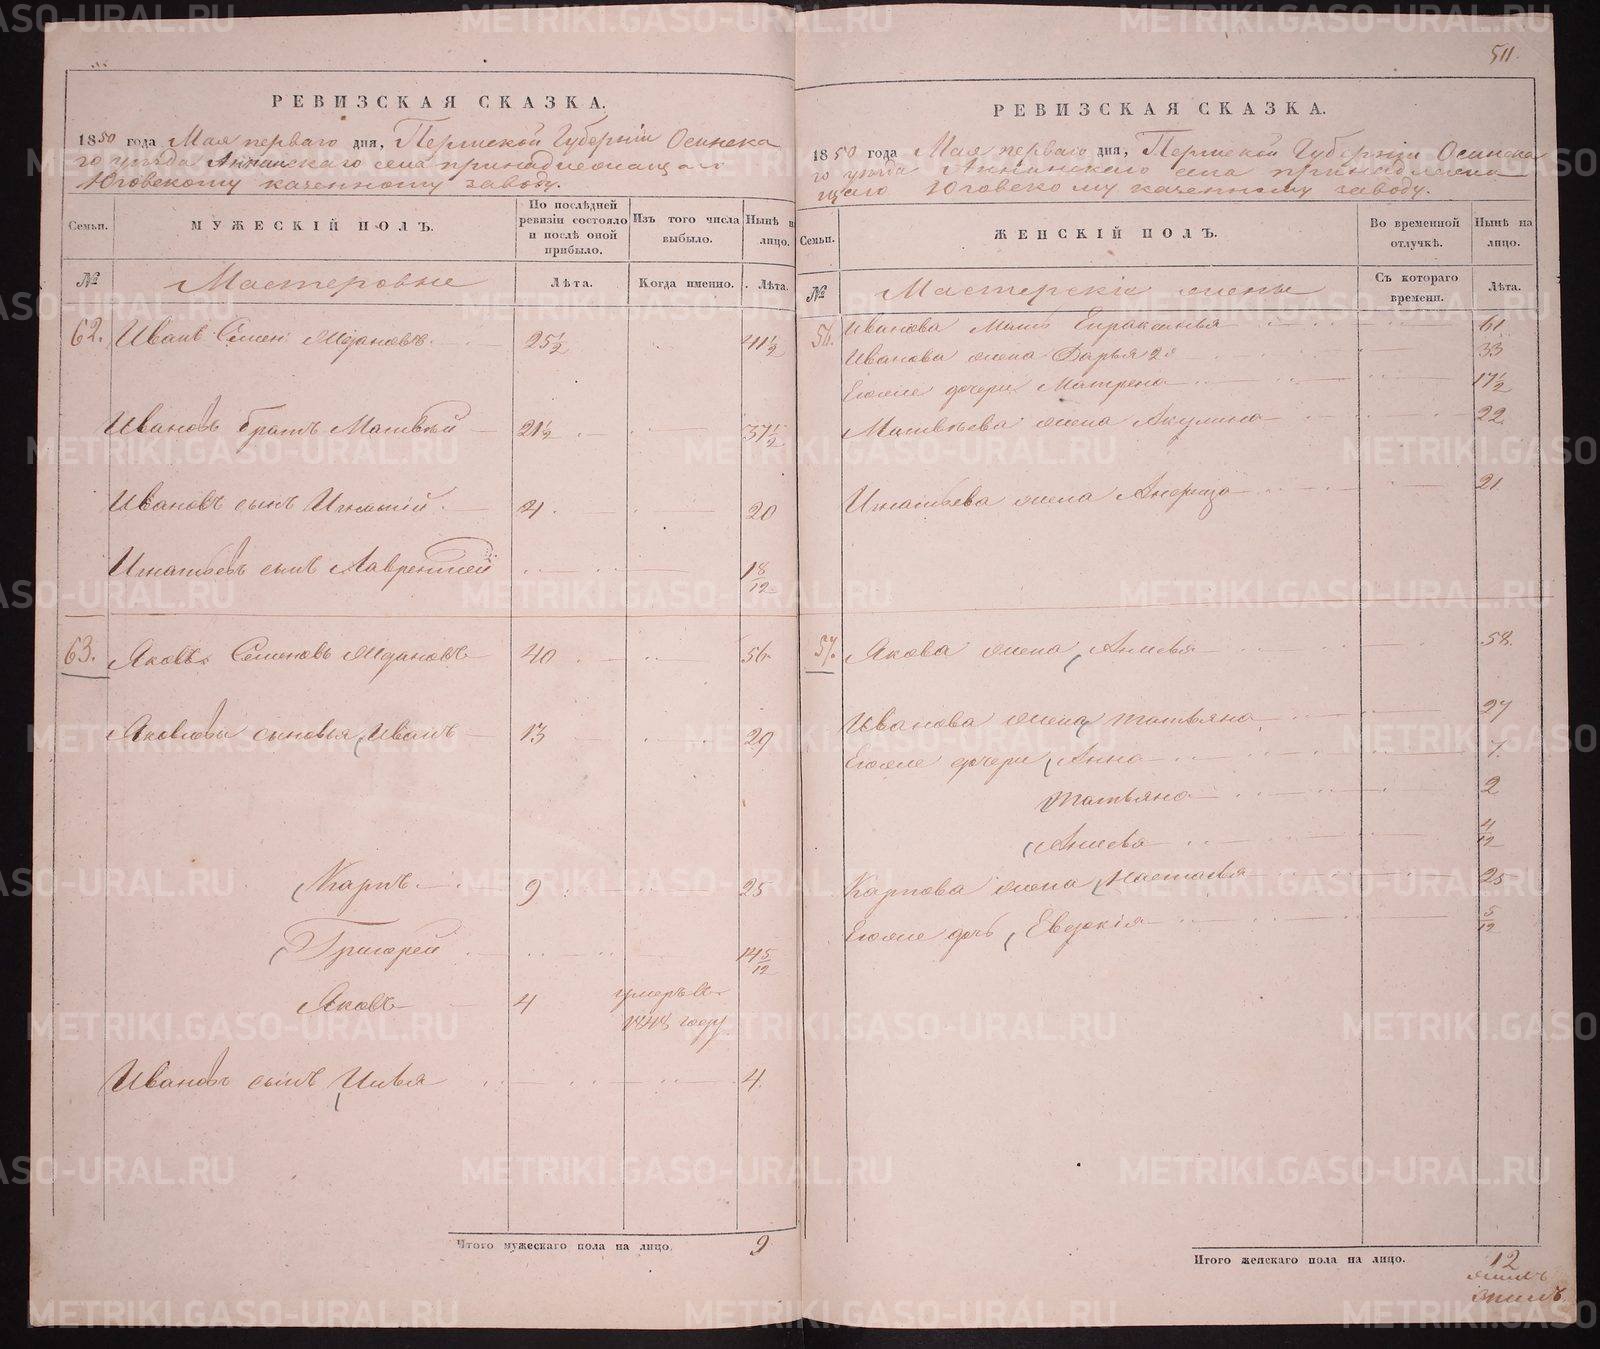 511.
РЕВИЗСКАЯ СКАЗКА.
1850 года Мая перваго дня, Пермской Губерніи Осинска
го уѣзда Аннинскаго села принадлежащаго
Юговскому казенному заводу.
Семьи.
МУЖЕСКІЙ ПОЛЪ.
По послѣдней ревизіи состояло и послѣ оной прибыло.
Изъ того числа выбыло.
Нынѣ на лицо.
№
Мастеровые
Лѣта.
Когда именно.
Лѣта.
62. Иванъ Семен Ждановъ 25½ 41½
Ивановъ братъ Матвѣй 21½ 37½
Ивановъ сынъ Игнатій 4 20
Игнатьевъ сынъ Лаврентей 18/12
63. Яковъ Семеновъ Ждановъ 40 56
Яковлевы сыновья, Иванъ 13 29
Карпъ 9 25
Григорей 14 5/12
Яковъ 4 умеръ въ
1848 году
Ивановъ сынъ Илья 4
Итого мужескаго пола на лицо. 9
РЕВИЗСКАЯ СКАЗКА.
1850 года Мая перваго дня, Пермской Губерніи Осинска
го уѣзда Аннинскаго села принадлежа
щаго Юговскому казенному заводу.
Семьи.
ЖЕНСКІЙ ПОЛЪ.
Во временной отлучкѣ.
Нынѣ на лицо.
№
Мастерскіе жены
Съ котораго времени.
Лѣта.
56. Иванова Мать 61
Иванова жена Дарья 2я 33
Ихже дочери Матрена 17½
Матвѣева жена Акулина 22
Игнатьева жена 21
57. Якова жена, Анисья 58
Иванова жена, Татьяна 27
Ихже дочери, Анна 7
Татьяна 2
4/12
Карпова жена, Настасья 25
Ихже дочь, Евдокія 5/12
Итого женскаго пола на лицо. 12
METRIKI.GASO-URAL.RU